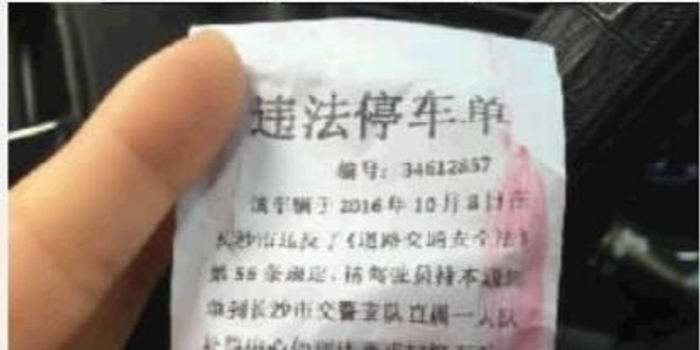 违法停车单
编号：34612857
该车辆于2016年10月8日在
长沙市违反了《道路交通安全法》
第56条规定，请驾驶员持本通知
单到长沙市交警支队直属一大队